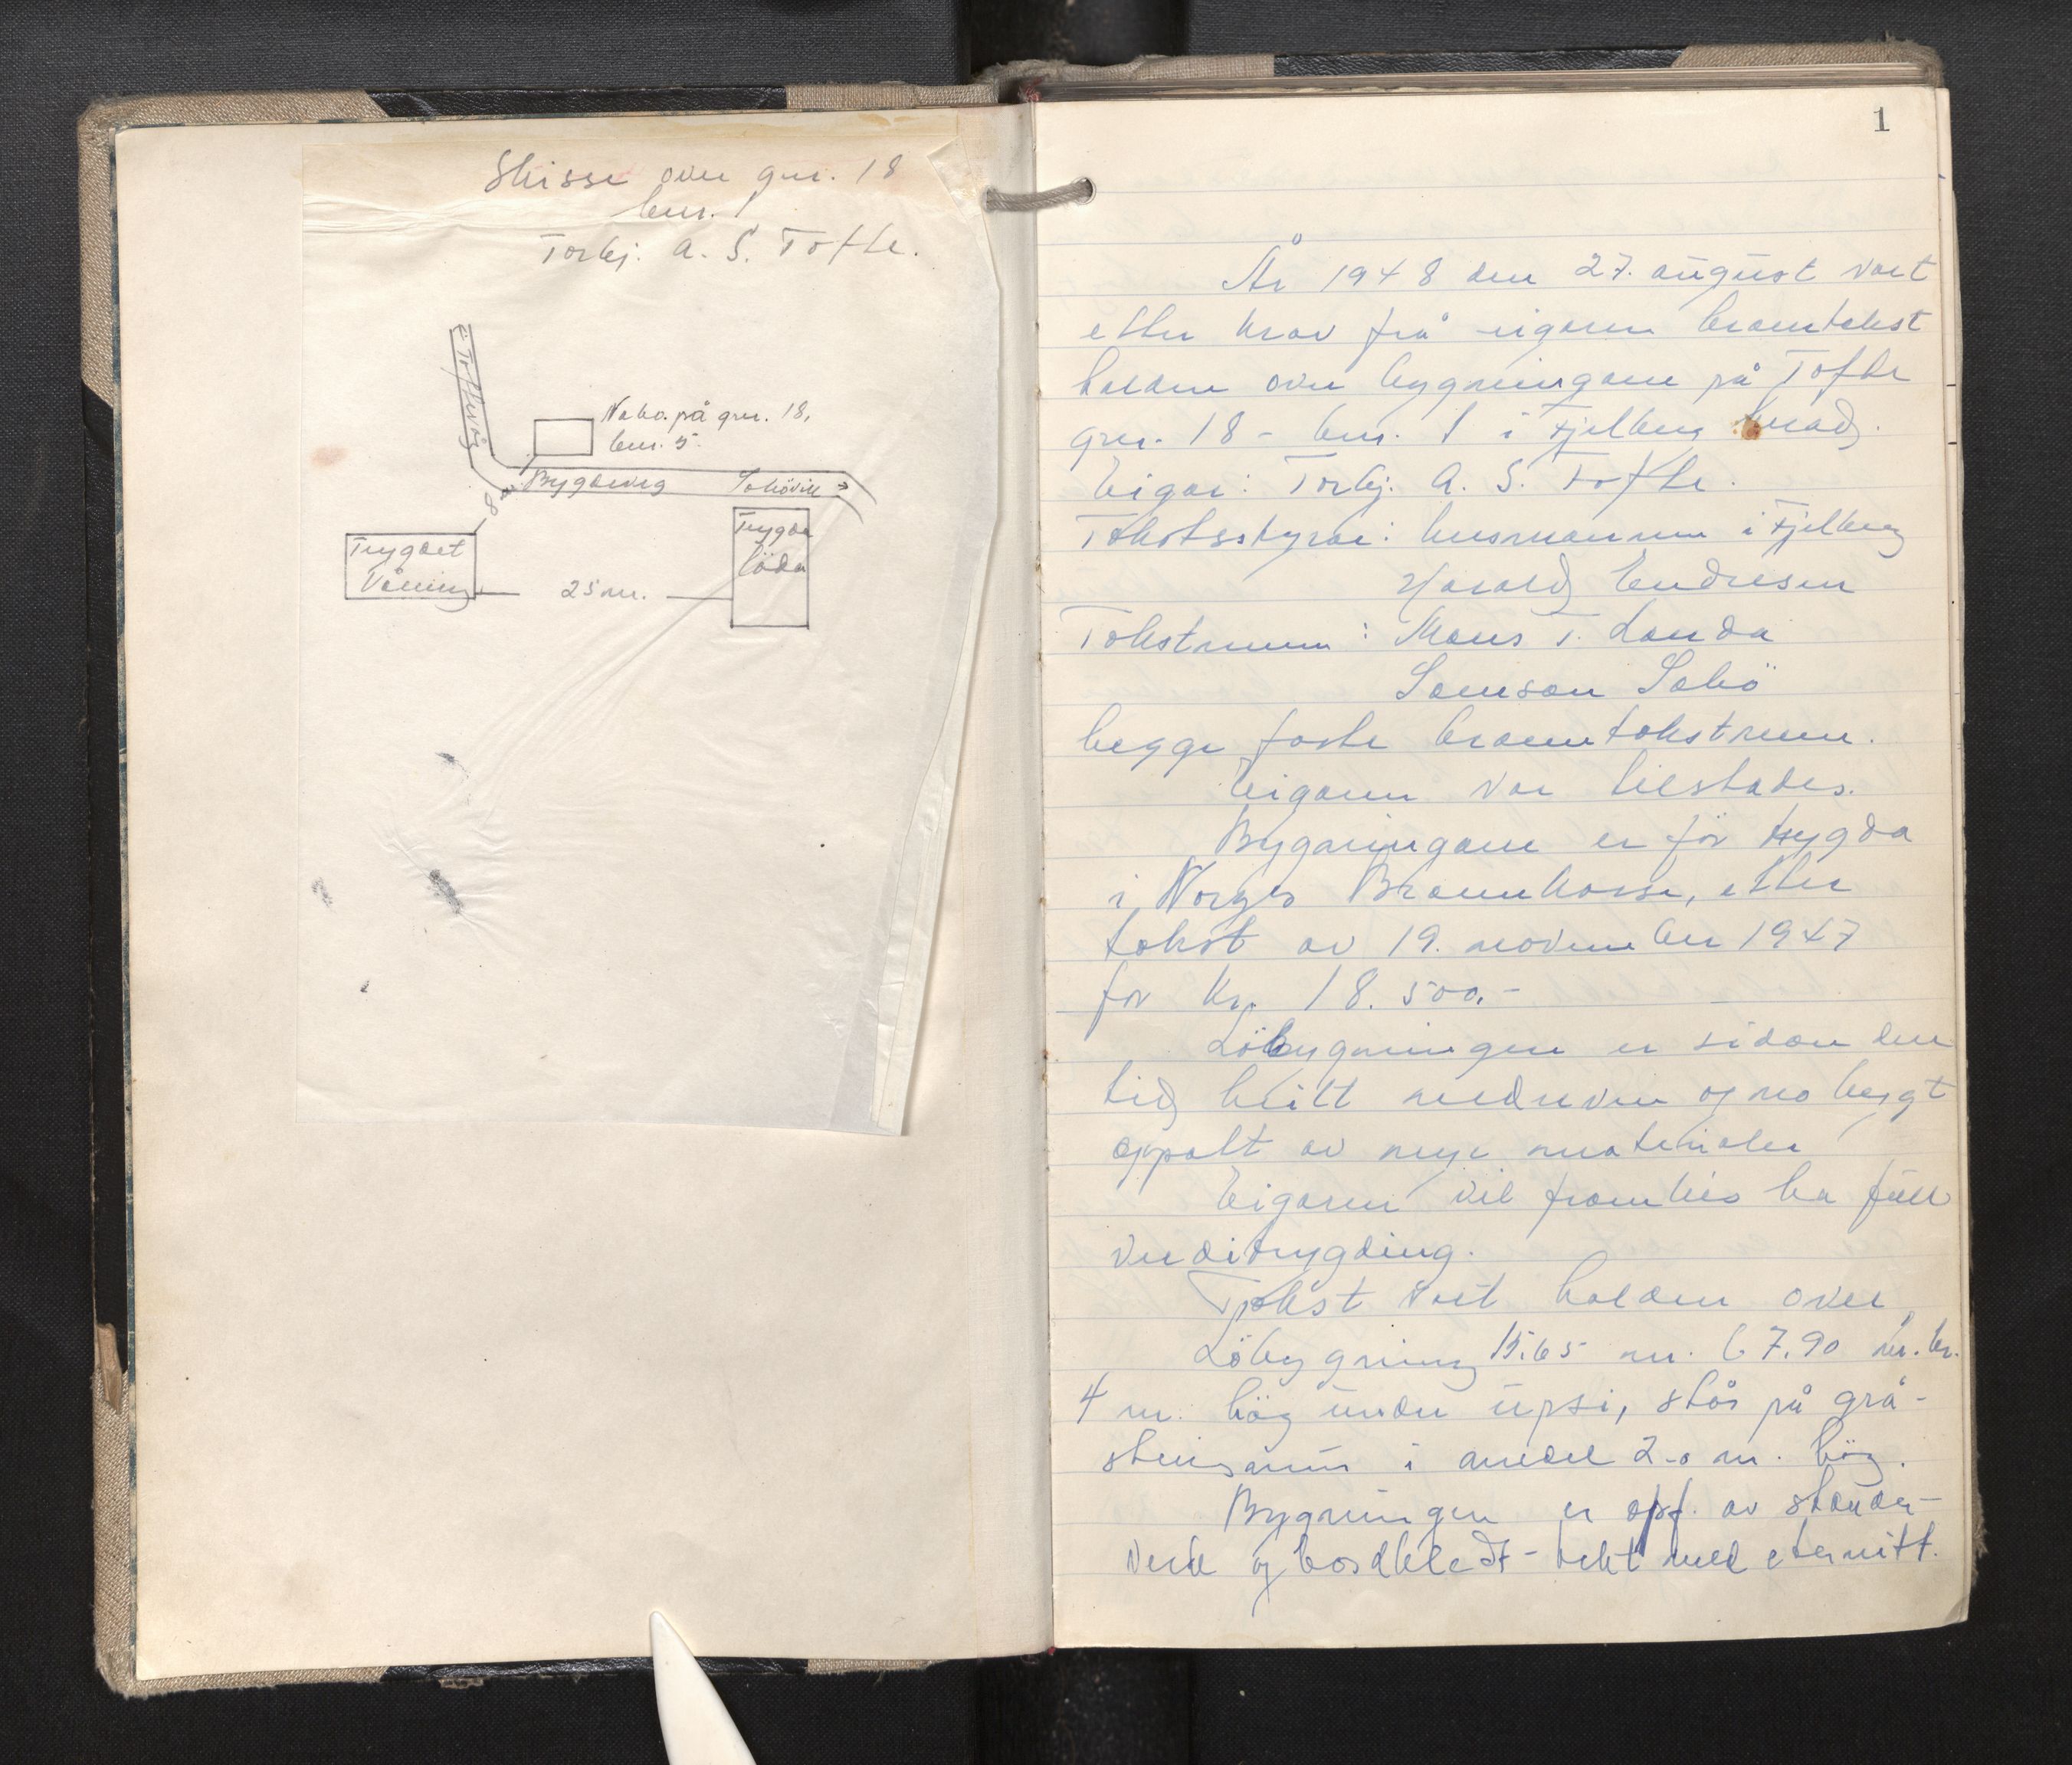 Skisse over gnr. 18
bnr. 1
Torbj. A. S. Tofte.
Toftevåg
Nabo på gnr. 18,
bnr. 5.
Bygdeveg
8 m
Trygdet
Våning
25 m.
Trygda
löda
1
År 1948 den 27. august vart
etter krav frå eigaren branntakst
halden over bygningane på Tofte
gnr. 18 - bnr. 1 i Fjelberg herad.
Eigar: Torbj. A. S. Tofte.
Takstsstyrar: lensmannen i Fjelberg
Harald Endresen
Takstmenn: Mons T. Landa
Samson Sakö
begge faste branntakstmenn.
Eigaren var tilstades.
Bygningane er för trygda
i Norges Brannkasse, etter
takst av 19. november 1947
for kr. 18.500.-
Löbygningen er sidan den
tid blitt nedriven og no bygt
oppatt av nye materialer
Eigaren vil framleis ha full
verditrygding.
Takst vart halden over
Löbygning 15.65 m. l. 7.90 m. br.
4 m. høg under upsi, står på grå-
steinsmur i medel 2.0 m. høg.
Bygningen er opf. av stender-
verk og bordkledt - tekt med eternitt.